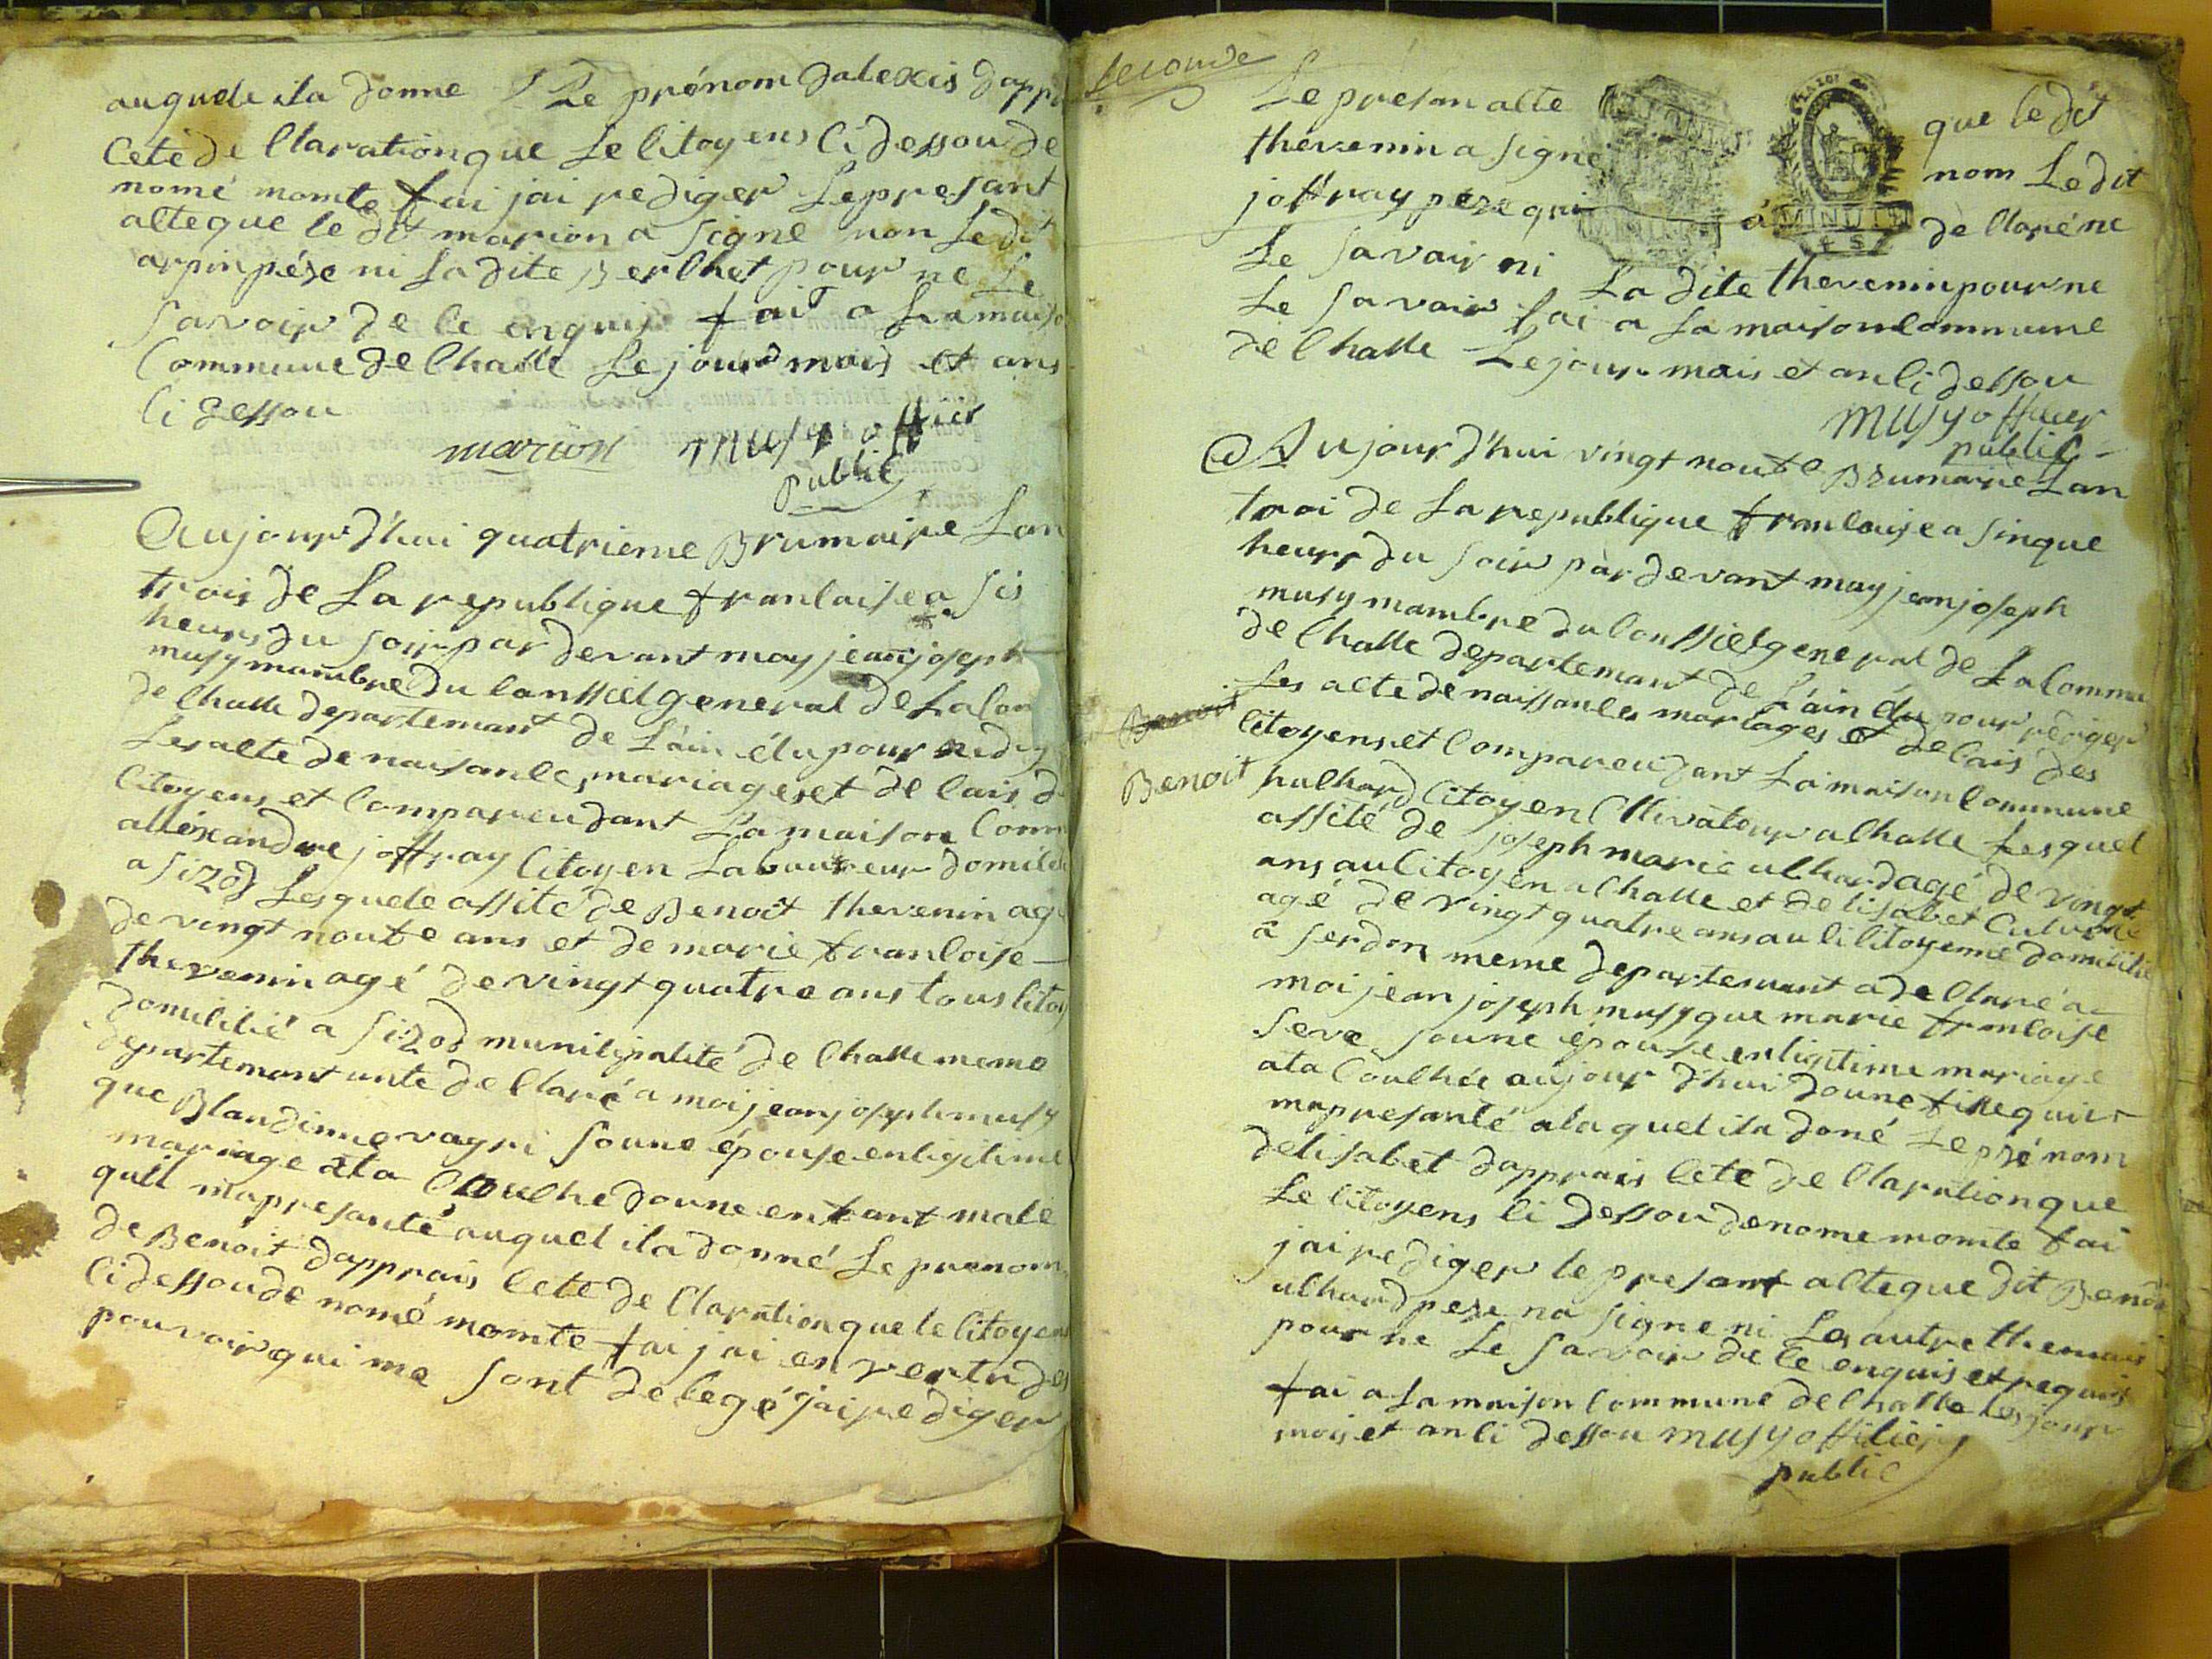 auquele ila donne Le prénom dalexis dappr
Cete de Claration que Le Citoyens Ci dessou de
nomé momte fai jai rediger Le presant
acte que le dit marion a signé non Le dit
arpin pére ni La dite Berchet pour ne Le
savoir de Ce enquis fait a La maiso
Commune de Challe Le jour mois et ans
Ci dessou
marion musy officier
public
Aujourd'hui quatrieme Brumaire Lan
trois de La republique francaise a sis
heurs du soir par devant moy jean joseph
musy mambre du Conssiel general de La Com
de Challe departemant de L'ain élu pour redig
Les acte de naisances, mariages et de Cais d
Citoyens et Compareu dant La maison Comm
alléxandre joffray Citoyen Laboureur domicil
a sizod Lesquele assité de Benoit thevenin agé
de vingt noufe ans et de marie francoise
thevenin agé de vingt quatre ans tous Citoy
domicilié a sizod municipalité de Challe meme
departemant ante de Claré a moi jean joseph musy
que Blandinne vayri soune épouse en ligitime
mariage ata Couché doune enfant male
quil mapresanté auquel ila donné Le prenom
de Benoit dapprais Cete de Claration que le Citoyens
Ci dessou de nomé momte fai jai en vertu des
pouvoir qui me sont delegé jai rediger
seconde
Le presan acte que le dit
thevenin a signé nom Le dit
joffray pere qui a de Claré ne
MINUTE
Le savair ni La dite thevenin pour ne
Le savair fai a La maison Commune
de Challe Le jour mois et an Ci dessou
musy officier
public
Aujourd'hui vingt noufe Brumaire Lan
troi de La republique francaise a sinque
heurs du soir par devant moy jean joseph
musy mambre du Conssiel general de La Commu
de Challe departemant de L'ain élu pour rediger
Les acte de naissances mariages et de Cais des
Benoit
Citoyens et Compareu dant La maison Commune
Benoit hulhard Citoyen Cltivateur a Challe Lesquel
assité de joseph marie ulhard agé de vingt
ans au Citoyen a Challe et de lisabet
agé de vingt quatre ans au Ci Citoyenne domicilié
a serdon meme departemant a de Claré a
moi jean joseph musy que marie francoise
seve soune épouse en ligitime mariage
ata Couchée aujourd'hui doune fille qui
mapresanté alaquel ila doné Le prénom
delisabet dapprais Cete de Claration que
Le Citoyens Ci dessou denome momte fai
jai rediger le presant acte que dit Benoit
ulhard pere na signe ni Les autre themois
pour ne Le savoir de Ce enquis et requis
fai a La maison Commune de Challe Les jour
mois et an Ci dessou musy officier
public